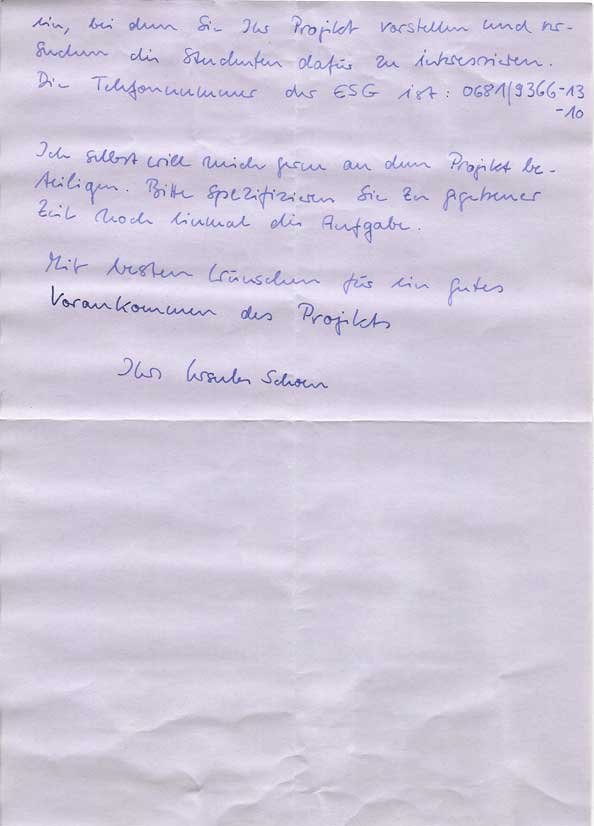 ein, bei dem Sie Ihr Projekt vorstellen und ver-
suchen die Studenten dafür zu interessieren.
Die Telefonnummer der ESG ist: 0681/9366-13
-10
Ich selbst will mich gern an dem Projekt be-
teiligen. Bitte spezifizieren Sie zu gegebener
Zeit noch einmal die Aufgabe.
Mit besten Wünschen für ein gutes
Vorankommen des Projekts
Ihre Ursula Schoen